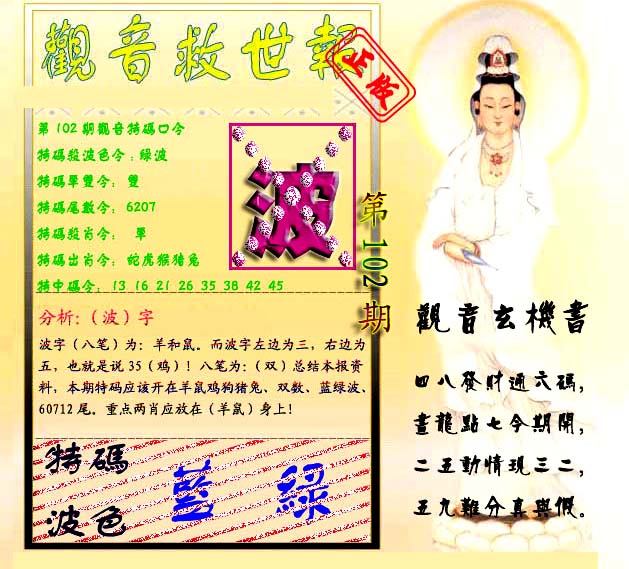 觀音救世報
正版
第102期觀音特碼口令
特碼殺波色令:綠波
特碼單雙令: 雙
特碼尾數令: 6207
特碼殺肖令: 單
特碼出肖令: 蛇虎猴猪兔
特中碼令: 13 16 21 26 35 38 42 45
波
第102期
分析:(波)字
波字(八笔)为:羊和鼠。而波字左边为三,右边为
五,也就是说35(鸡)!八笔为:(双)总结本报资
料,本期特码应该开在羊鼠鸡狗猪兔、双数、蓝绿波、
60712尾。重点两肖应放在(羊鼠)身上!
特碼
波色
藍 綠
觀音玄機書
四八發財通六碼,
畫龍點七今期開,
二五動情現三二,
五九難分真與假。